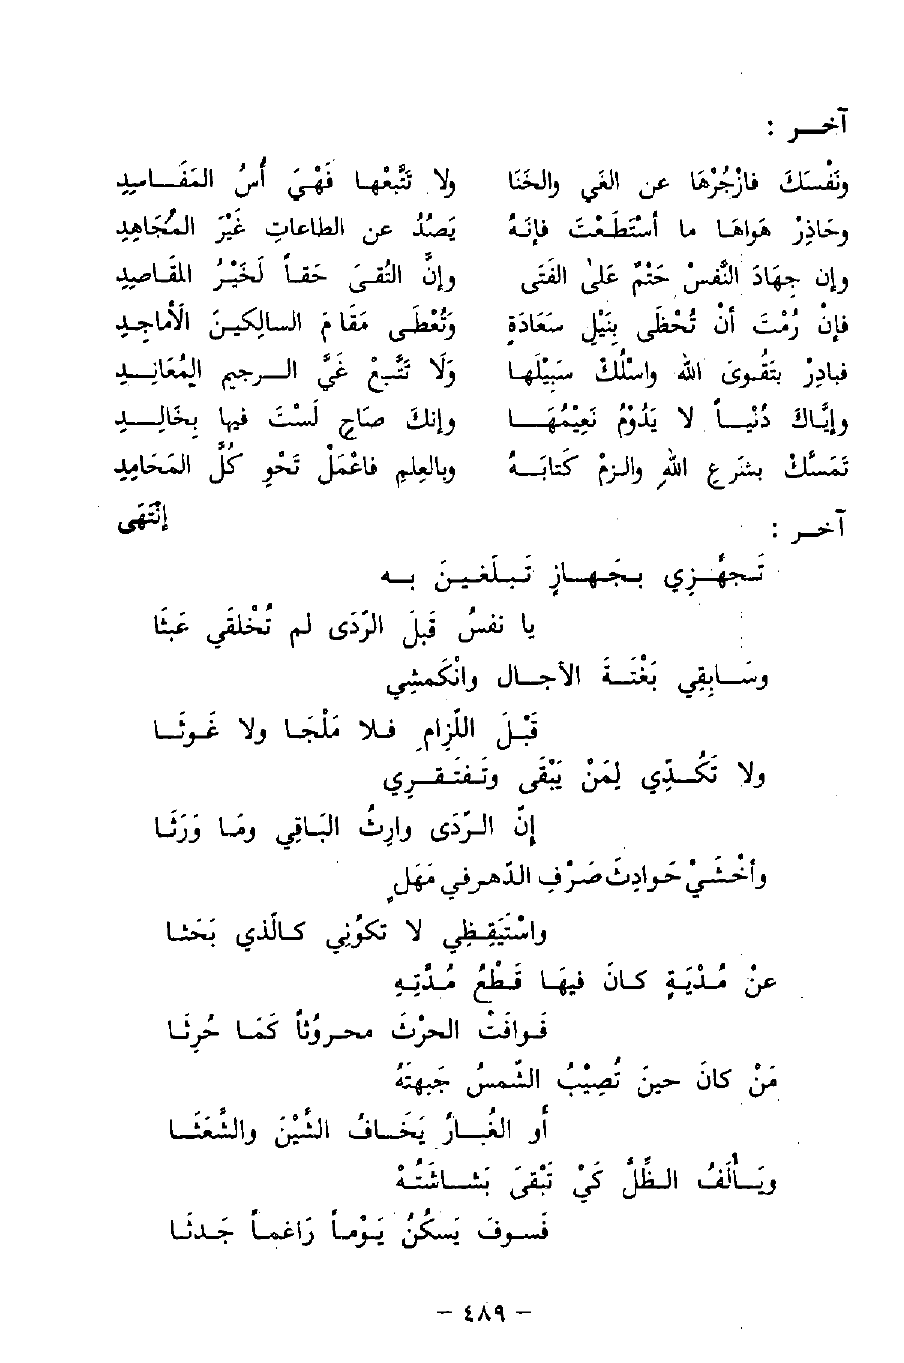 آخر :
ونَفْسَكَ فازْجُرْهَا عن الغَي والخَنَا ولا تَتْبَعْها فَهْيَ أُسُ المَفَاسِدِ
وحَاذِرْ هَواهَا ما أسْتَطَعْتَ فإِنَهُ يَصُدُ عن الطاعاتِ غَيْرَ المُجَاهِدِ
وإن جِهَادَ النَّفْسِ حَتْمٌ عَلَى الفَتَى وإنَّ التُقَى حَقاً لَخَيْرُ المَقَاصِدِ
فإنْ رُمْتَ أنْ تُحْظَى بِنَيْلِ سَعَادَةٍ وتُعْطَى مَقَامَ السَالِكِينَ الأَمَاجِدِ
فبادِرْ بتَقْوَى اللهِ واسْلُكْ سَبِيْلَهَا وَلَا تَتَّبِعْ غَيَّ الرجيم المُعَانِدِ
وإيَّاكَ دُنْيَاً لا يَدُوْمُ نَعِيْمُهَا وإنكَ صَاحِ لَسْتَ فيها بِخَالِدِ
تَمَسَّكْ بشَرعِ اللهِ والزمْ كَتَابَهُ وبالعِلمِ فاعْمَلْ نَحْوِ كُلِّ المَحَامِدِ
إنْتَهَى
آخر :
تَجَهَّزِي بجَهَازٍ تَبلَغينَ به
يا نفسُ قَبلَ الرَّدَى لم تُخْلَقي عَبثَا
وسَابِقِي بَغْتَةَ الآجال وانْكَمشِي
قَبْلَ اللِّزامِ فلا مَلْجَا ولا غَوثَا
ولا تَكُدِّي لِمَنْ يَبْقَى وتَفتَقرِي
إنَّ الرَّدَى وارِثُ البَاقِي ومَا وَرَثَا
وأخْشَيْ حَوادِثَ صَرْفِ الدَّهرِ في مَهَلٍ
واسْتَيَقِظِي لا تكوُنِي كالَّذي بَحَثا
عنْ مُدْيَةٍ كانَ فيهَا قَطْعُ مُدَّتِهِ
فَوافَتْ الحرْثَ محروُثاً كَمَا حُرِثَا
مَنْ كانَ حينَ تُصِيْبُ الشَّمسُ جَبهتَهُ
أو الغُبارُ يَخَافُ الشَّيْنَ والشَّعَثَا
ويَألَفُ الظِّلَّ كَيْ تَبْقَى بَشَاشَتُهُ
فَسوفَ يَسكُنُ يَوْماً رَاغِماً جَدثَا
- ٤٨٩ -